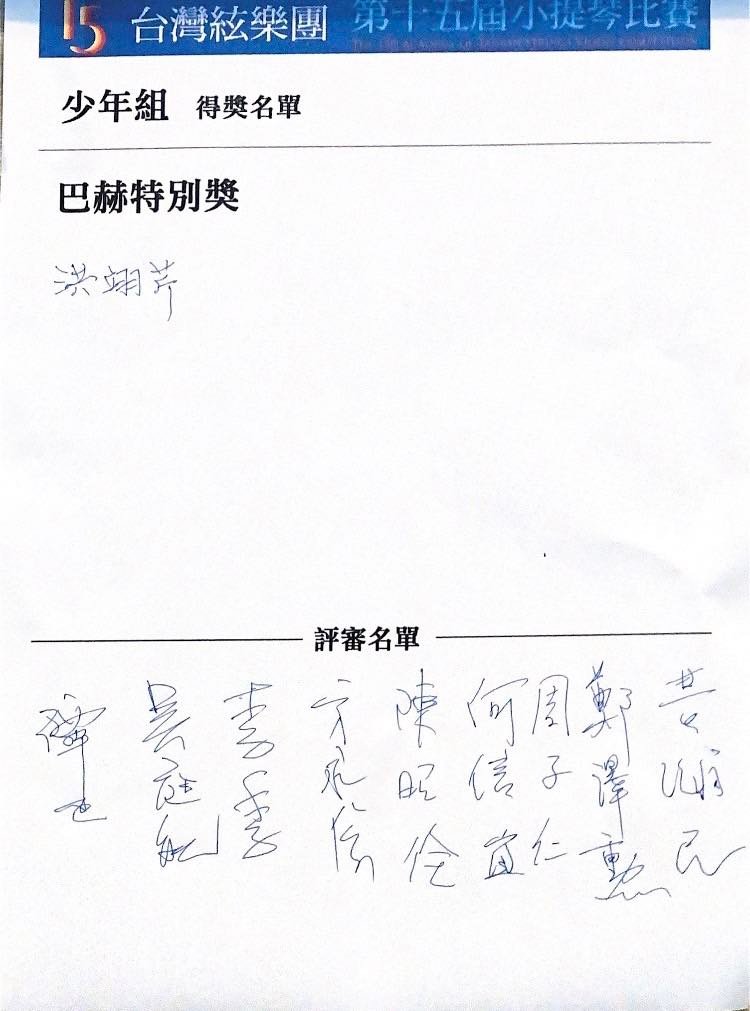 15 台灣絃樂團 第十五屆小提琴比賽
少年組 得獎名單
巴赫特別獎
洪翊芹
評審名單
吳庭毓
李季
方永信
陳昭佺
何信宜
周子仁
鄭澤勳
黃維民